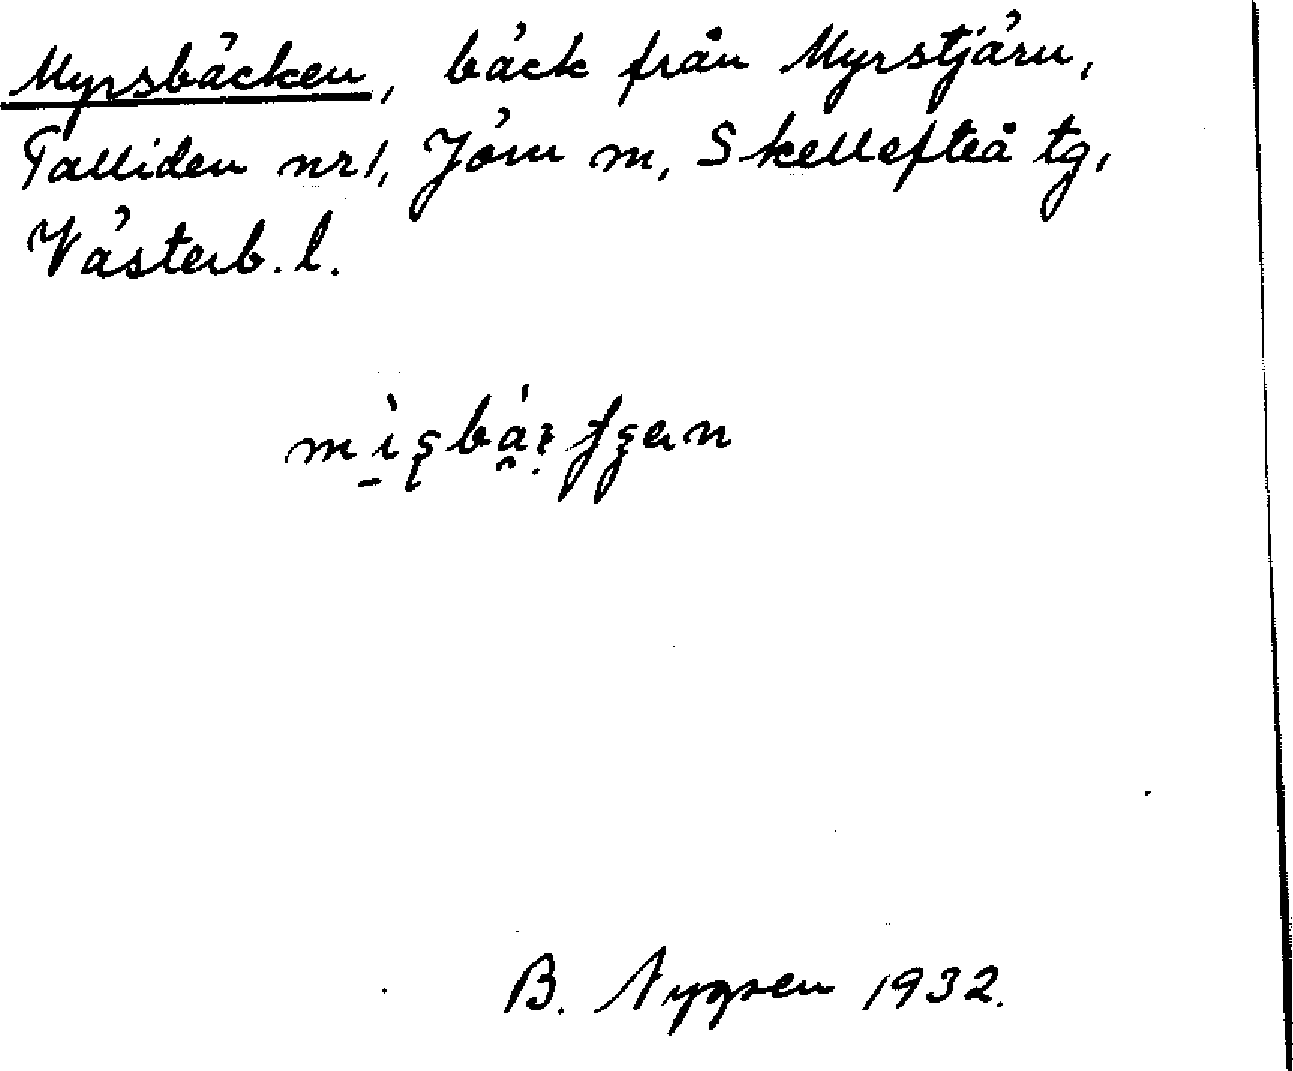 Myrsbäcken, bäck från Myrstjärn,
Talliden nr 1, Jörn m, Skellefteå tg,
Västerb. l.
B. Nygren 1932.